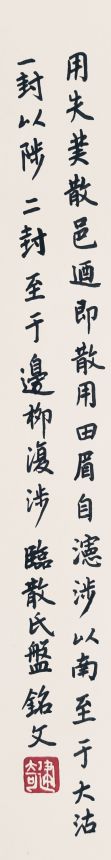 用夨𢦏散邑迺即散用田眉自瀗涉以南至于大沽
一封以陟二封至于邊柳復涉 臨散氏盤銘文